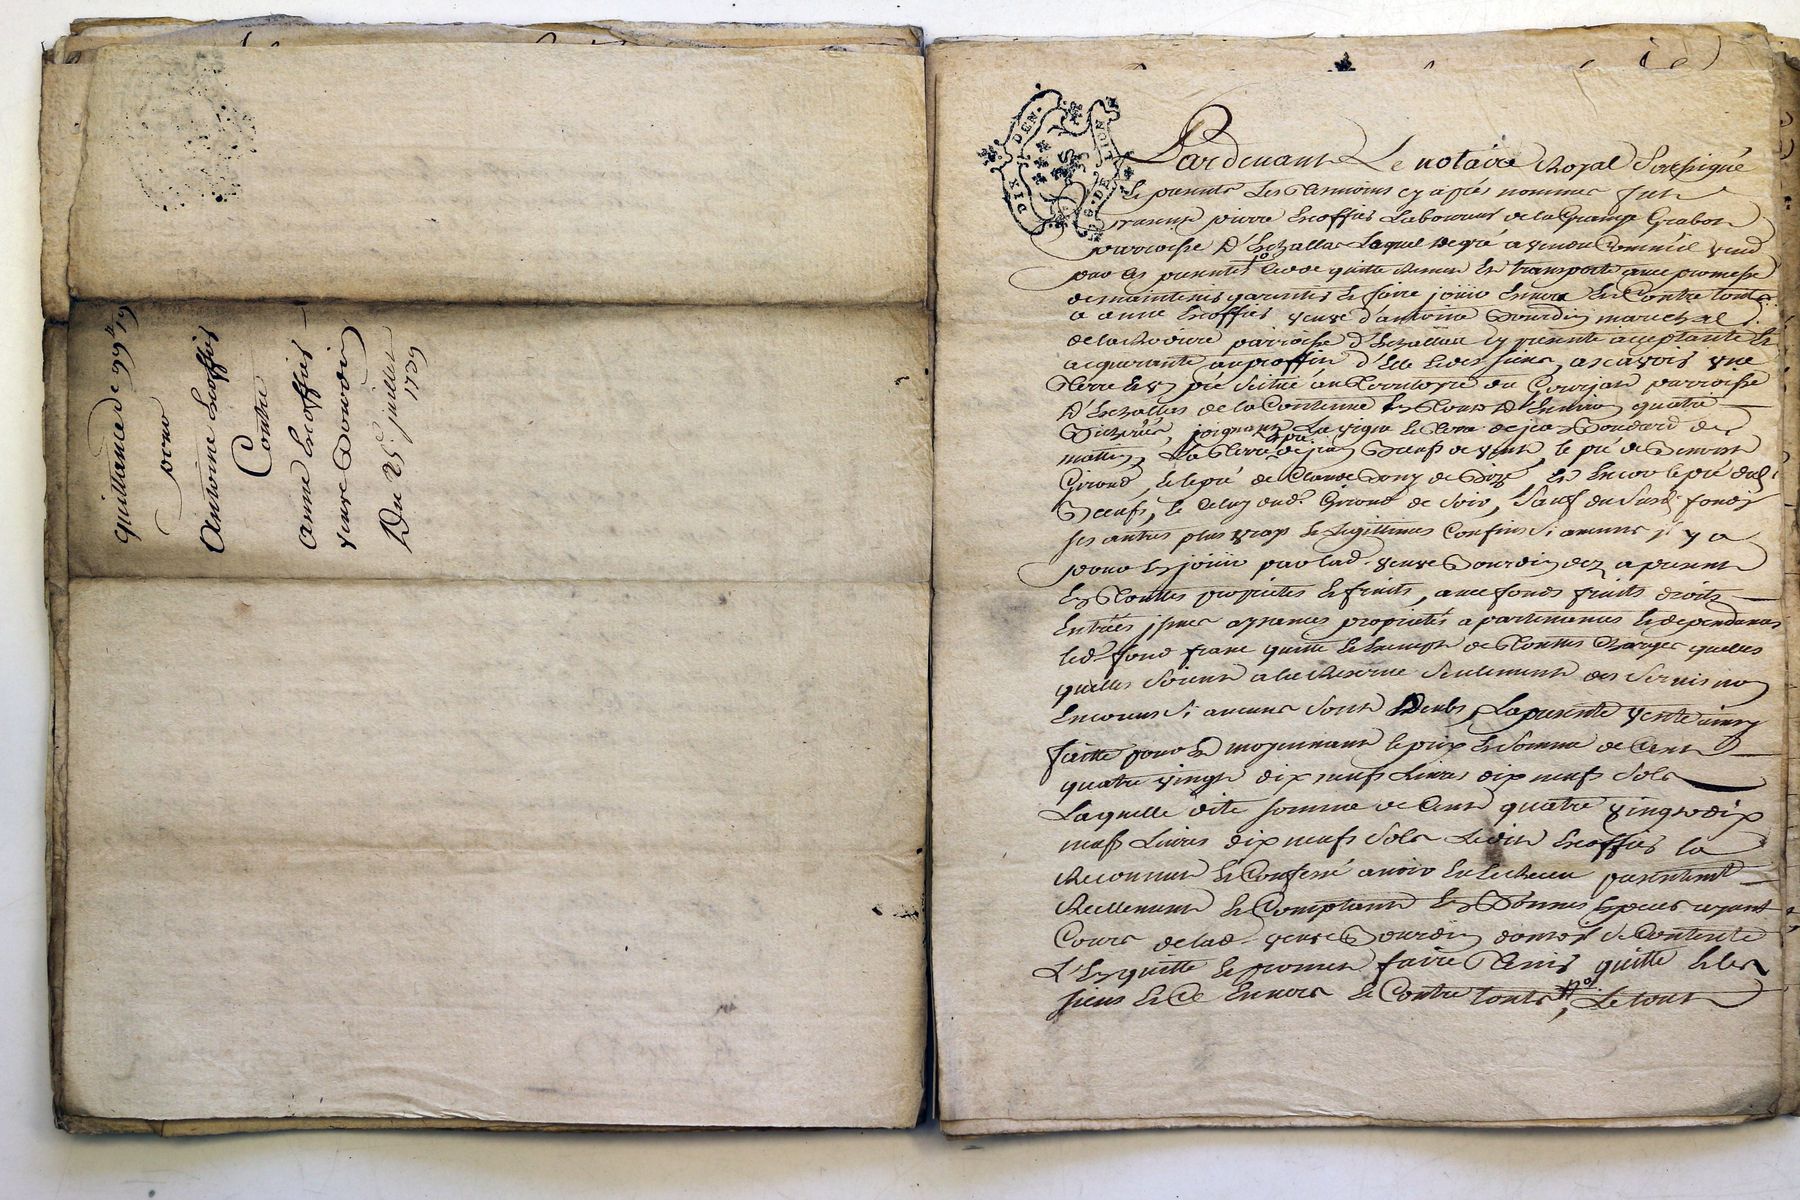 quittance de 99# 19
pour
Antoine Escoffier
Contre
anne Escoffier
veuve Dourdin
Du 25e juillet
1739
DIX DEN.
G. DE LION
Pardevant Le notaire Royal Soussigné
Et presents Les Temoins cy apres nommes fut
present pierre Escoffier Laboureur de la Grange
parroisse D'Echallas Lequel de gré a vendu Comme il vend
par ces presentes cede quitte Remet Et transporte avec promesse
de maintenir garentir Et faire jouir Envers Et Contre touts
a anne Escoffier veuve d'antoine Dourdin marechal
de la parroisse d'Echallas cy presente acceptante Et
acquerante au proffit d'Elle Et des siens, a scavoir une
Terre Et pré Scitué au Territoyre du parroisse
D'Echallas de la Contenue En Tout D'Environ quatre
Bicherées, joignant La vigne Et Terre de jean de
matin, La Terre Et pré de jean de vent, le pré de Benoist
Giroud, Et le pré de Claude de Et Encor le pré dud.
le Celuy dud. Giroud de Soir, Sauf du Susd. fonds
ses autres plus vrays Et Legitimes Confins Si aucuns il y a
pour En jouir par lad. veuve Dourdin dez a present
En Touttes proprietes Et fruits, avec fonds fruits droits
Entrées jssues aysances proprietés apartenances Et dependances
led. fond franc quitte Et Exempt de Touttes Charges quelles
quelles Soient a la Reserve Seulement des Servis non
Encourus Si aucuns Sont deubs, La presente vente ainsy
faitte pour Et moyennant le prix Et Somme de Cent
quatre vingt dix neuf Livres dix neuf Sols
Laquelle dite somme de Cent quatre vingt dix
neuf Livres dix neuf Sols Ledit Escoffier la
Reconnu Et Confessé avoir Eu Et Receu presentement
Reellement Et Comptant En Bonnes Especes ayant
Cours de lad. veuve Dourdin dont il Se Contente
L'En quitte Et promet faire Tenir quitte Et les
siens Et Ce Envers Et Contre touts, Le tout